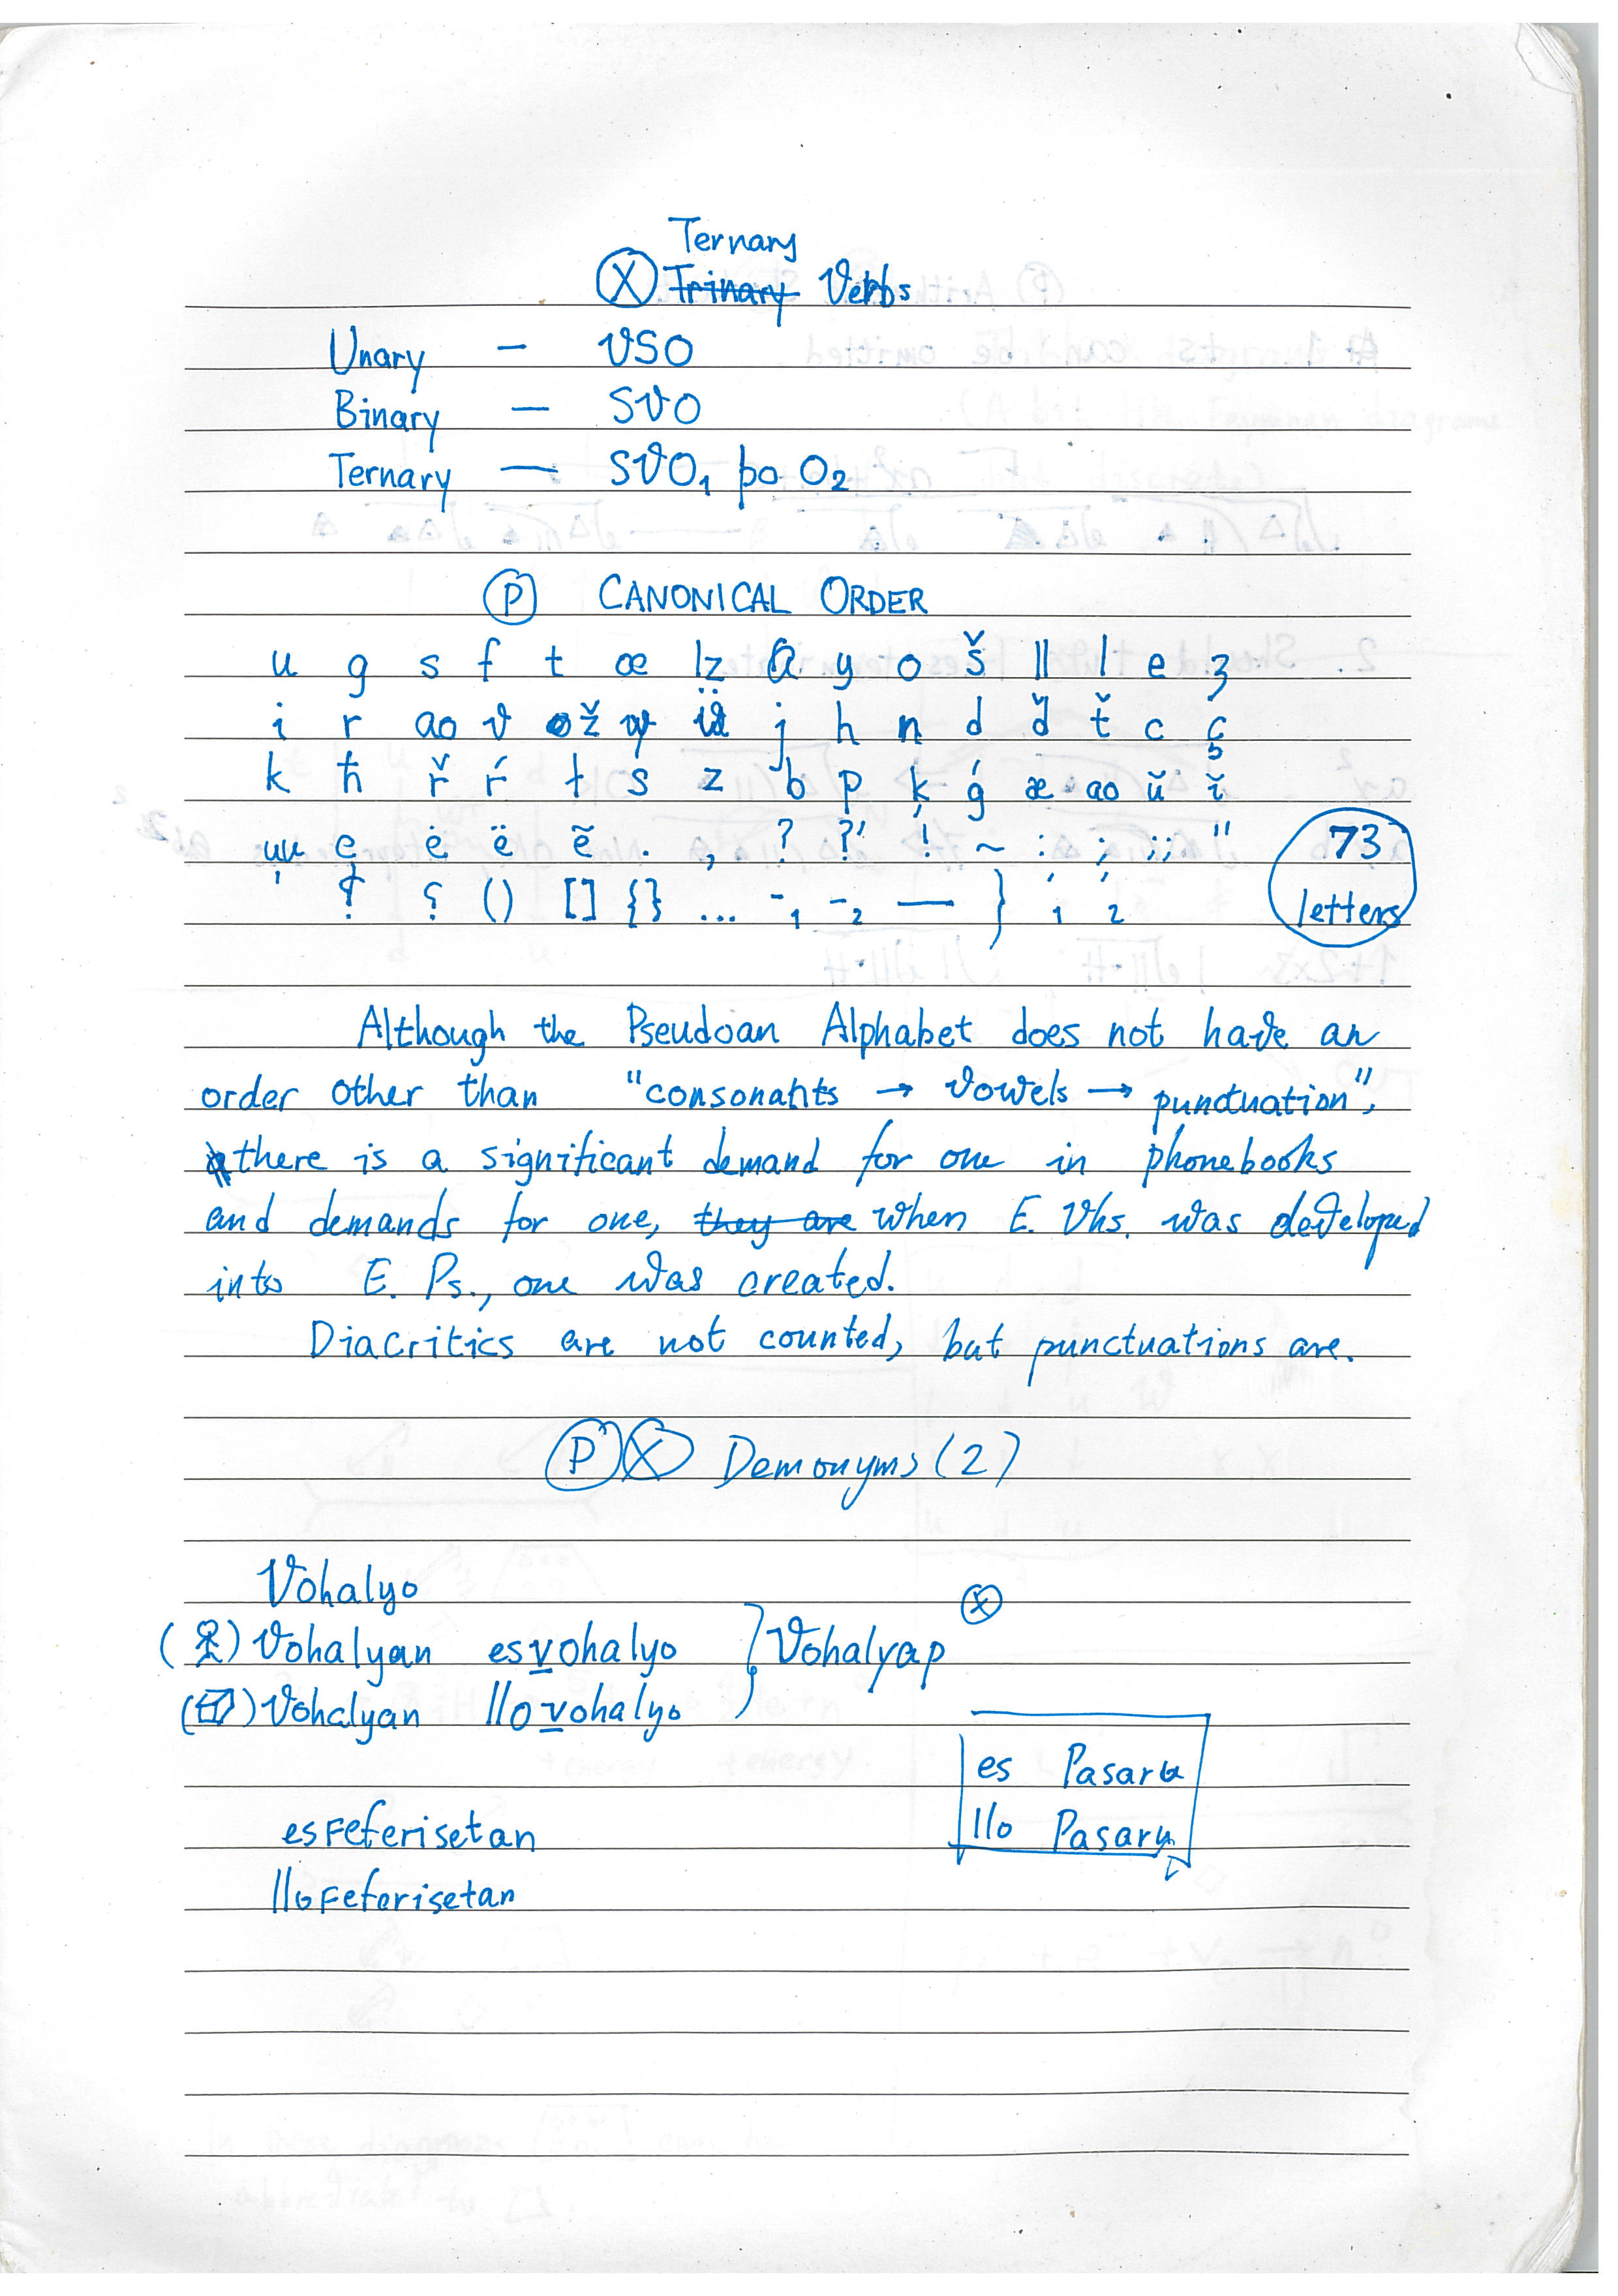 Ternary
Ⓧ Trinary Verbs
Unary — VSO
Binary — SVO
Ternary — SVO₁ po O₂
Ⓟ CANONICAL ORDER
u g s f t œ lz a y o š ll l e ʒ
i r ao v ž w j h n d ď ť c ç
k ħ ř ŕ ł ś z b p ķ ǵ æ ao ŭ ĭ
ɥ ę ė ë ẽ . , ? ?' ! ~ : ; ;; "
() [] {} ... -₁ -₂ — } ,₁ ,₂
73
letters
Although the Pseudoan Alphabet does not have an
order other than "consonants → vowels → punctuation",
there is a significant demand for one in phonebooks
and demands for one, they are when E. Vhs. was developed
into E. Ps., one was created.
Diacritics are not counted, but punctuations are.
Ⓟ Ⓧ Demonyms (2)
Vohalyo
( ) Vohalyan esvohalyo } Vohalyap Ⓧ
( ) Vohalyan llovohalyo
es Pasaru
llo Pasaru
esFeferisetan
lloFeferisetan